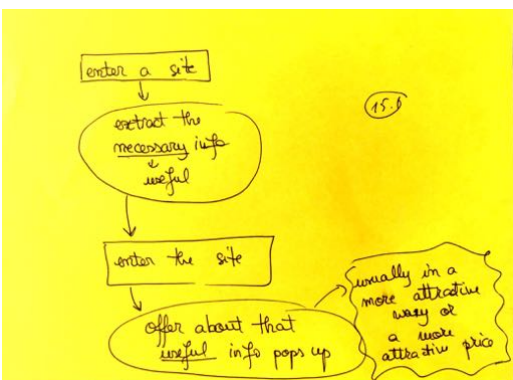 enter a site
15.6
extract the
necessary info
useful
enter the site
offer about that
useful info pops up
usually in a
more attractive
way or
a more
attractive price